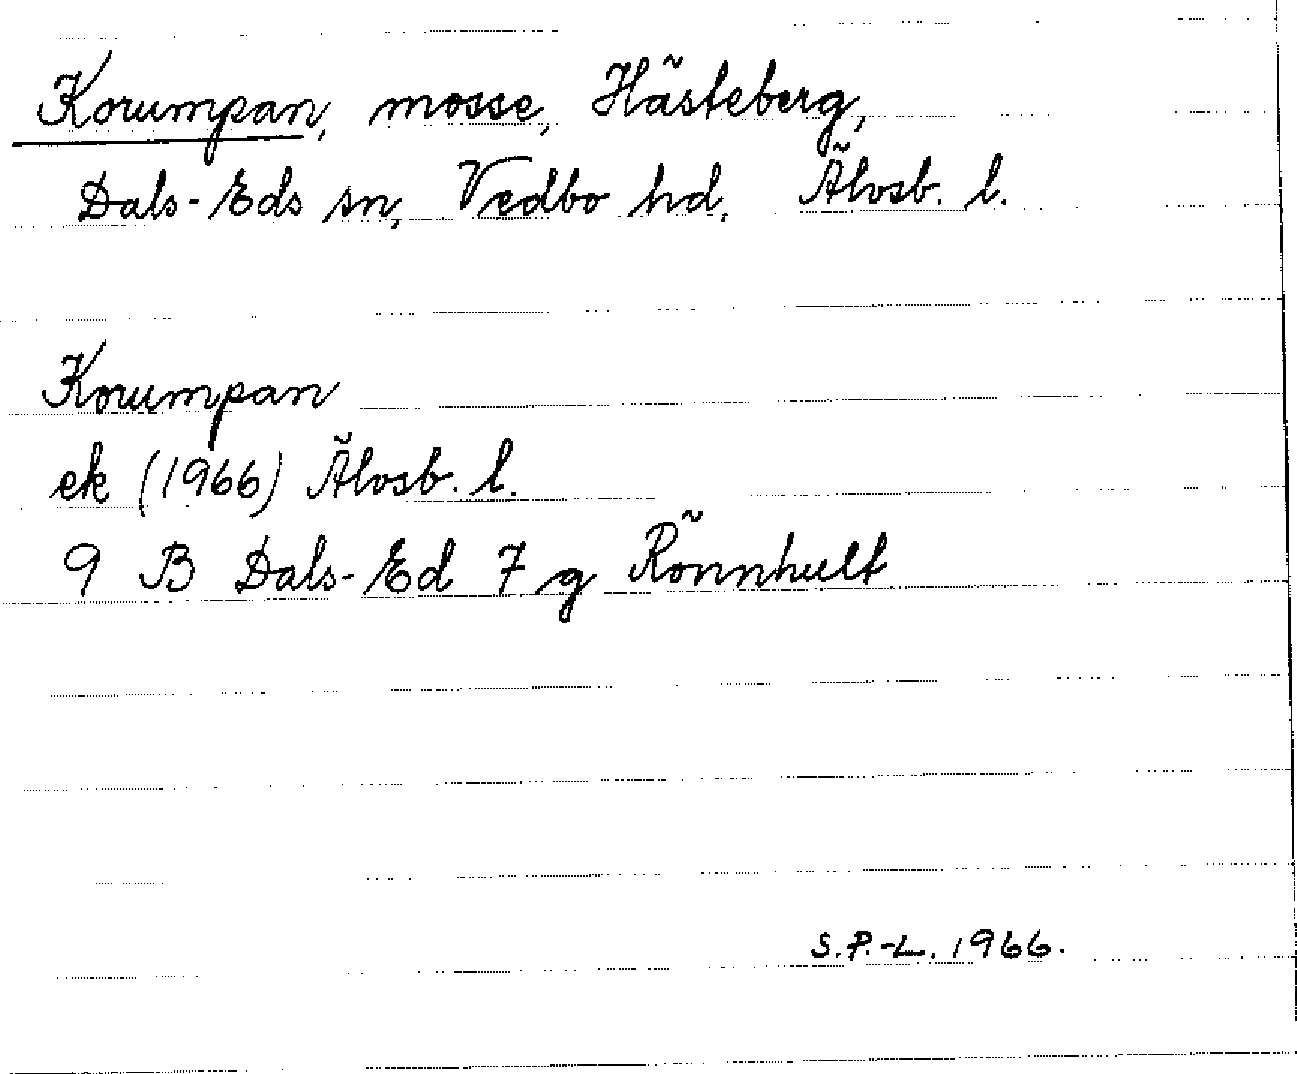 Korumpan, mosse, Hästeberg,
Dals-Eds sn, Vedbo hd, Älvsb. l.
Korumpan
ek (1966) Älvsb. l.
9 B Dals-Ed 7 g Rönnhult
S.P.-L. 1966.